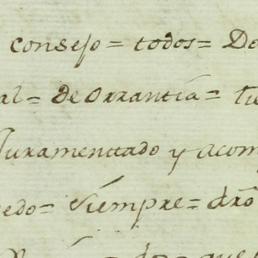 consejo = todos = Do
al = de Orrantia = tu
Juramentado y acom
edo = siempre = dro